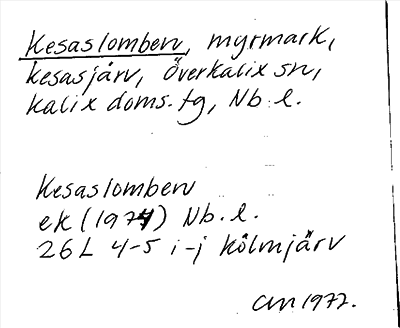 Kesaslomben, myrmark,
Kesasjärv, Överkalix sn,
Kalix doms. tg, Nb. l.
Kesaslomben
ek (1974) Nb. l.
26L 4-5 i-j Kölmjärv
1977.